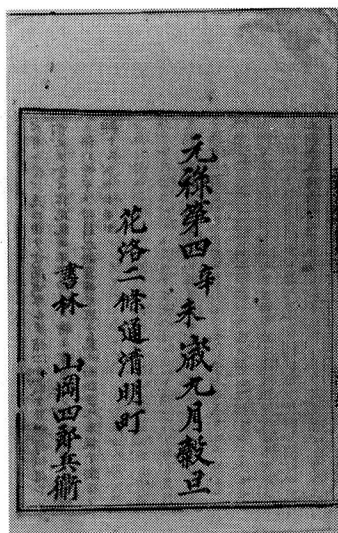 元祿第四辛未歳九月穀旦
花洛二條通清明町
書林 山岡四郎兵衛